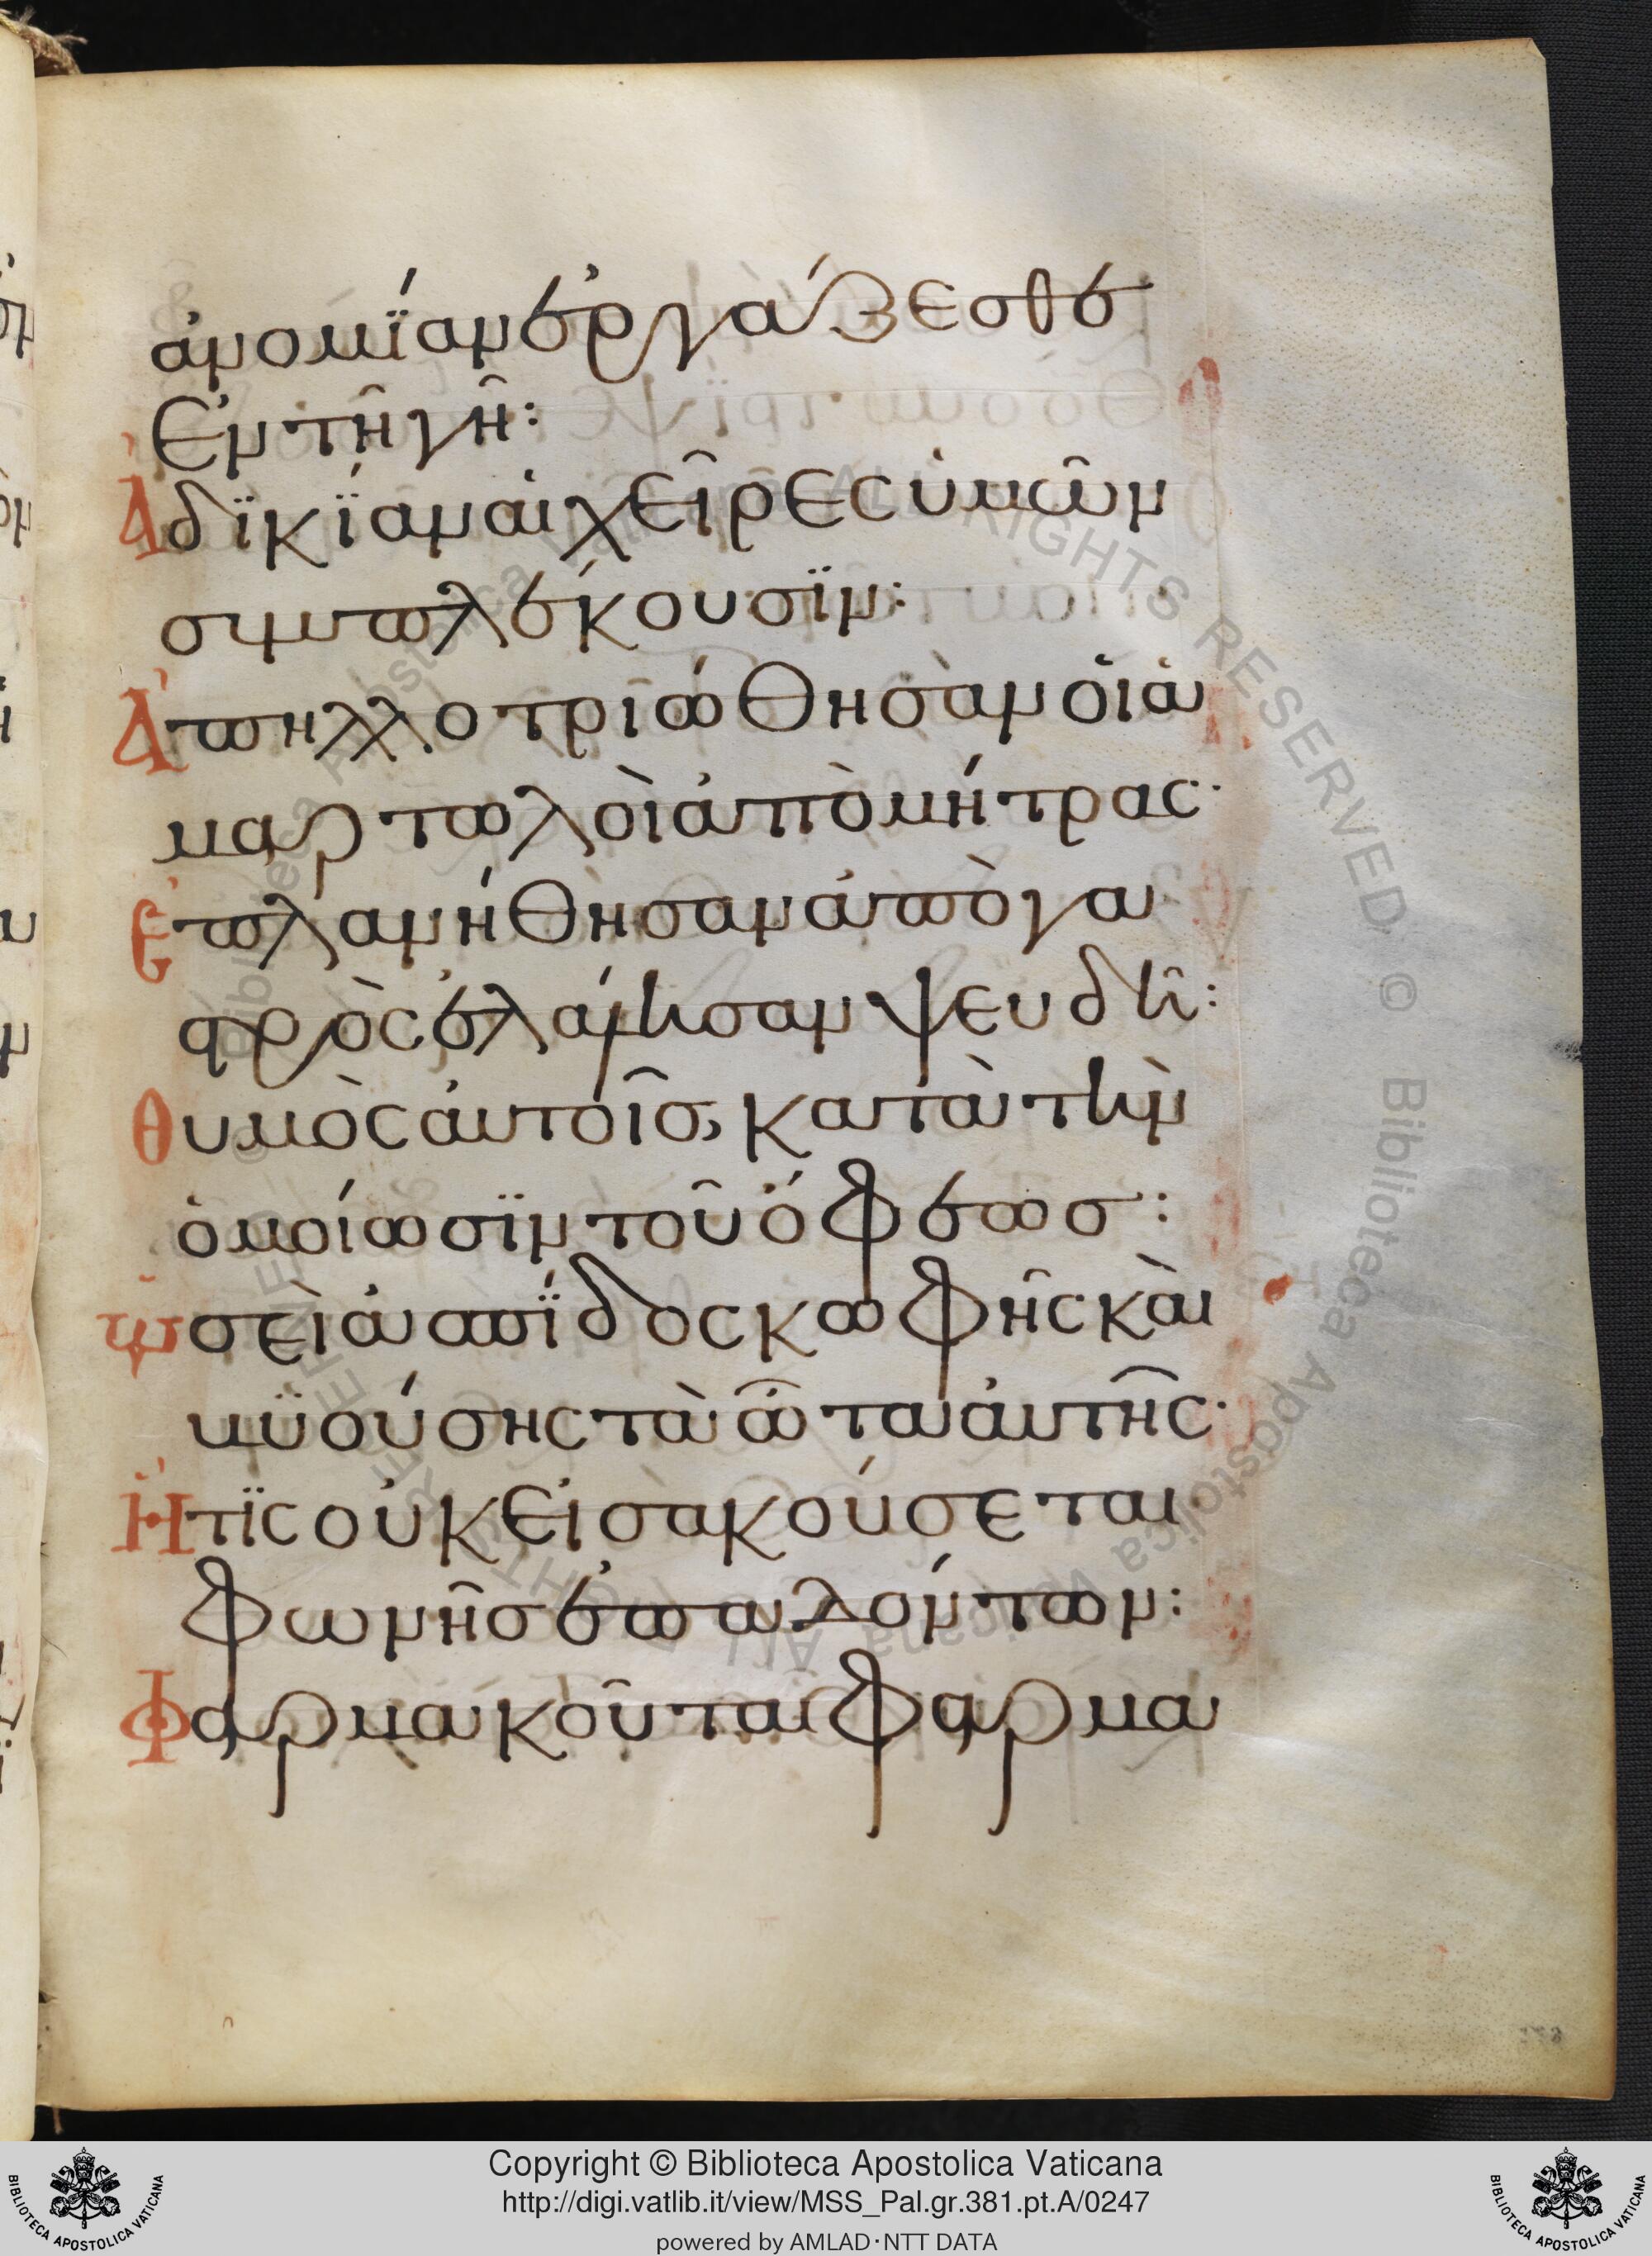 ἀνομίαν ἐργάζεσθε
ἐν τῆ γῆ:
Ἀδϊκΐαν αἱ χεῖρες ὑμῶν
συμπλέκουσϊν:
Ἀπηλλοτριώθησαν οἱ ἁ
μαρτωλοὶ ἀπὸ μήτρας·
Ἐπλανήθησαν ἀπὸ γα
στρὸς ἐλάλησαν ψευδῆ:
Θυμὸς αὐτοῖς, κατὰ τὴν
ὁμοίωσϊν τοῦ ὄφεως:
Ὡσεὶ ἀσπΐδος κωφῆς καὶ
βϋούσης τὰ ὦτα αὐτῆς·
Ἥτϊς οὐκ εἰσακούσεται
φωνῆς ἐπαδόντων:
Φαρμακοῦται φαρμα
Copyright © Biblioteca Apostolica Vaticana
http://digi.vatlib.it/view/MSS_Pal.gr.381.pt.A/0247
powered by AMLAD·NTT DATA